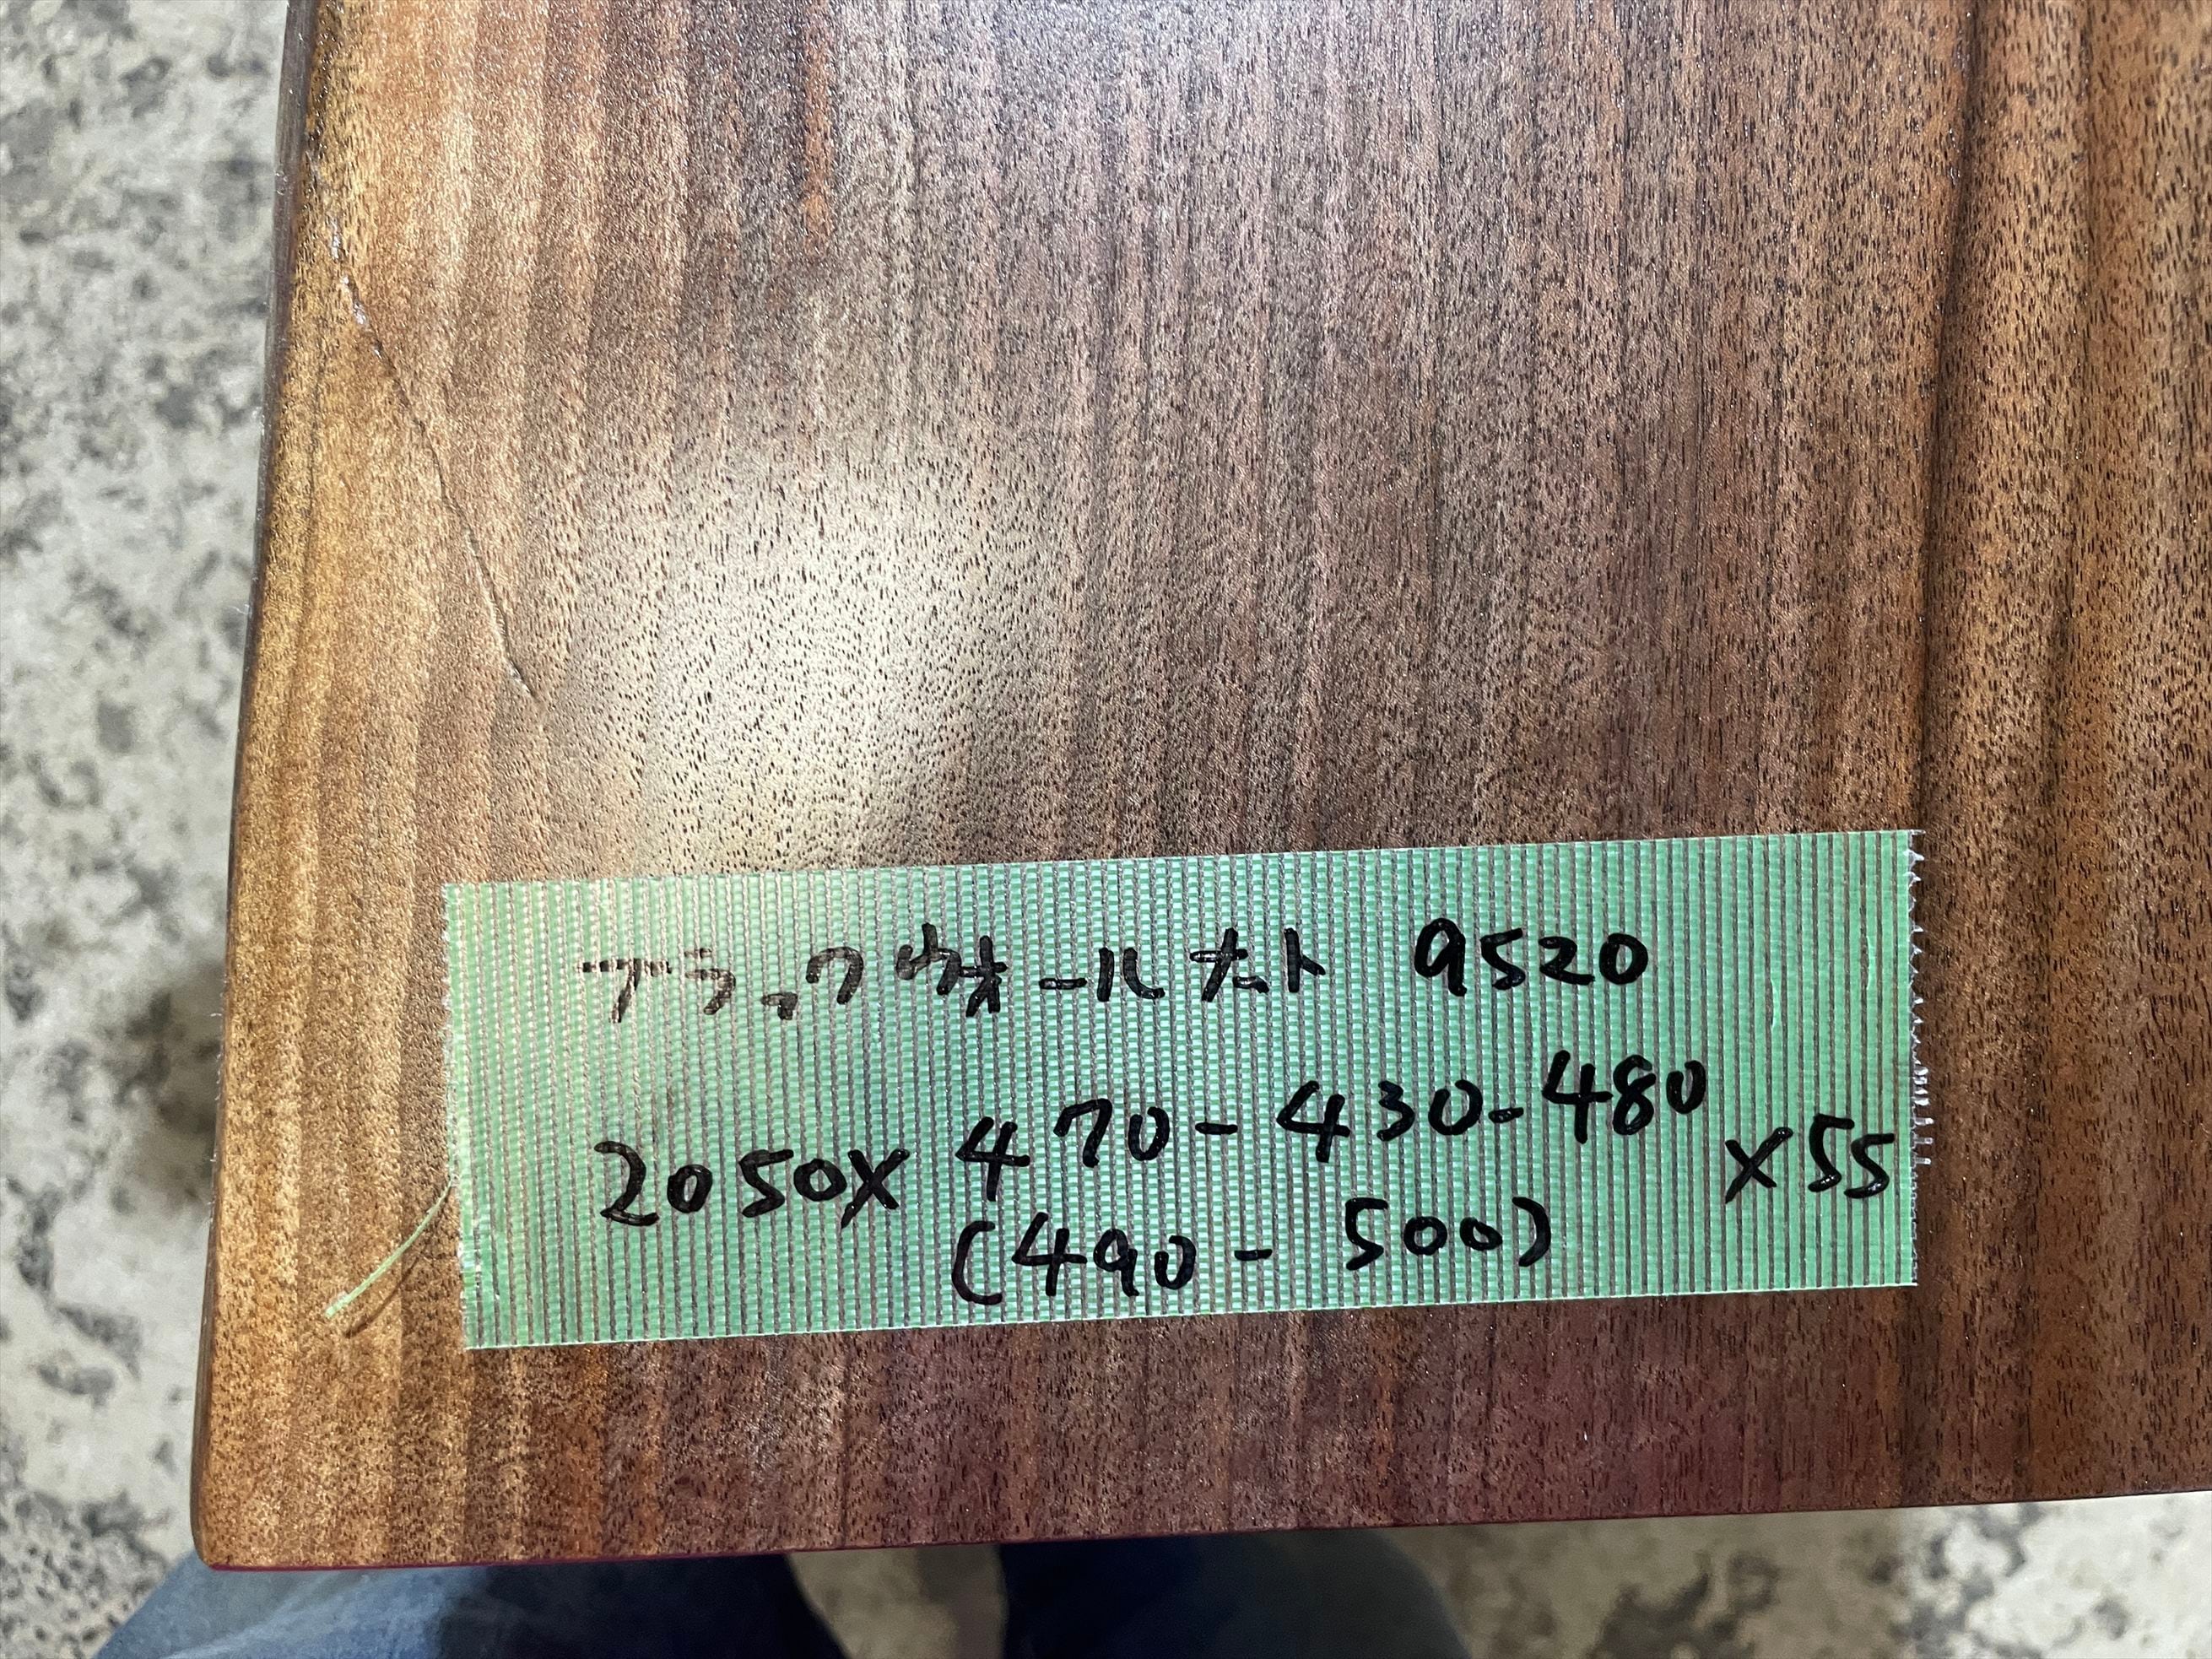 ブラックウォールナット 9520
2050×470-430-480×55
(490-500)